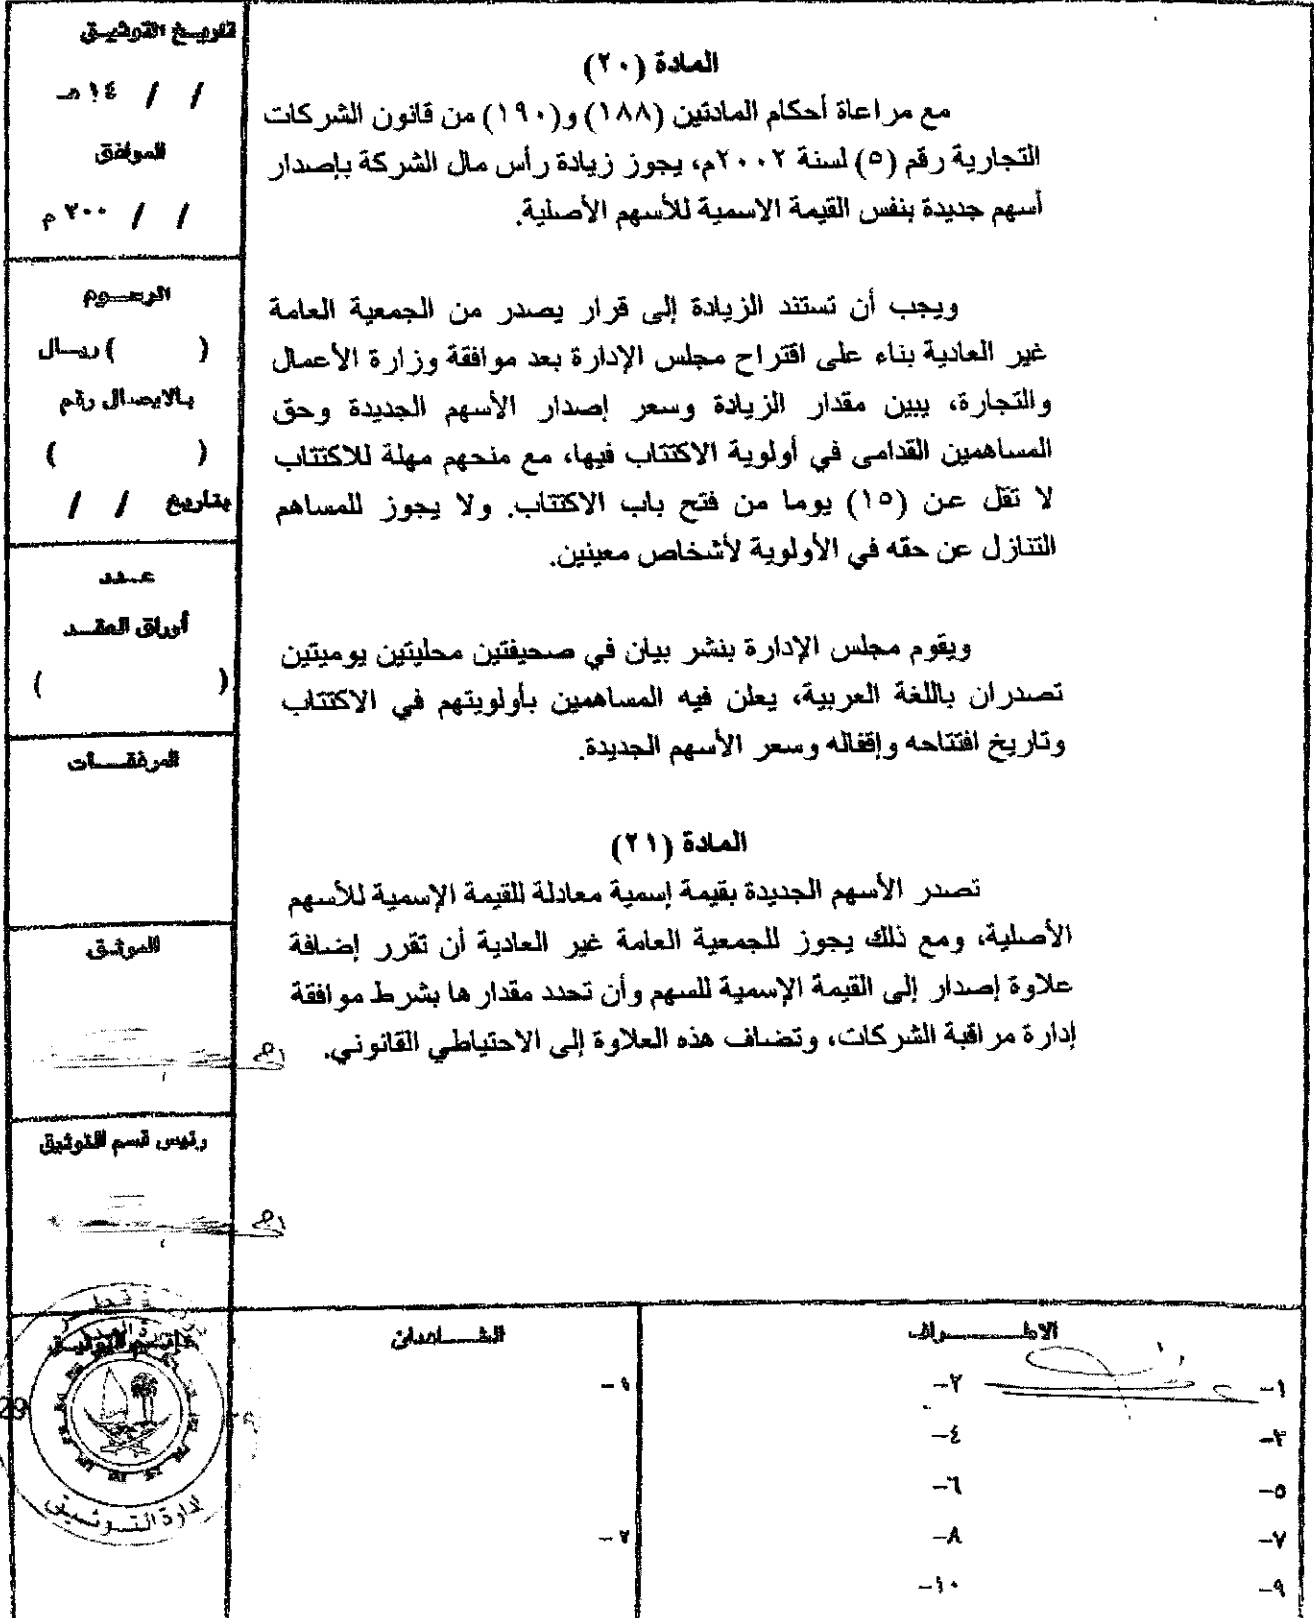 المادة (٢٠)
مع مراعاة أحكام المادتين (١٨٨) و(١٩٠) من قانون الشركات
التجارية رقم (٥) لسنة ٢٠٠٢م، يجوز زيادة رأس مال الشركة بإصدار
أسهم جديدة بنفس القيمة الاسمية للأسهم الأصلية.
ويجب أن تستند الزيادة إلى قرار يصدر من الجمعية العامة
غير العادية بناء على اقتراح مجلس الإدارة بعد موافقة وزارة الأعمال
والتجارة، يبين مقدار الزيادة وسعر إصدار الأسهم الجديدة وحق
المساهمين القدامى في أولوية الاكتتاب فيها، مع منحهم مهلة للاكتتاب
لا تقل عن (١٥) يوما من فتح باب الاكتتاب. ولا يجوز للمساهم
التنازل عن حقه في الأولوية لأشخاص معينين.
ويقوم مجلس الإدارة بنشر بيان في صحيفتين محليتين يوميتين
تصدران باللغة العربية، يعلن فيه المساهمين بأولويتهم في الاكتتاب
وتاريخ افتتاحه وإقفاله وسعر الأسهم الجديدة.
المادة (٢١)
تصدر الأسهم الجديدة بقيمة إسمية معادلة للقيمة الإسمية للأسهم
الأصلية، ومع ذلك يجوز للجمعية العامة غير العادية أن تقرر إضافة
علاوة إصدار إلى القيمة الإسمية للسهم وأن تحدد مقدارها بشرط موافقة
إدارة مراقبة الشركات، وتضاف هذه العلاوة إلى الاحتياطي القانوني.
تاريخ التوثيق
/ / ١٤هـ
الموافق
/ / ٢٠٠ م
الرسوم
( ) ريال
بالايصال رقم
( )
بتاريخ / /
عدد
أوراق العقد
( )
المرفقات
الموثق
رئيس قسم التوثيق
خاتم التوثيق
إدارة التوثيق
29
الاطراف
١- ٢-
٣- ٤-
٥- ٦-
٧- ٨-
٩- ١٠-
الشاهدان
١-
٢-